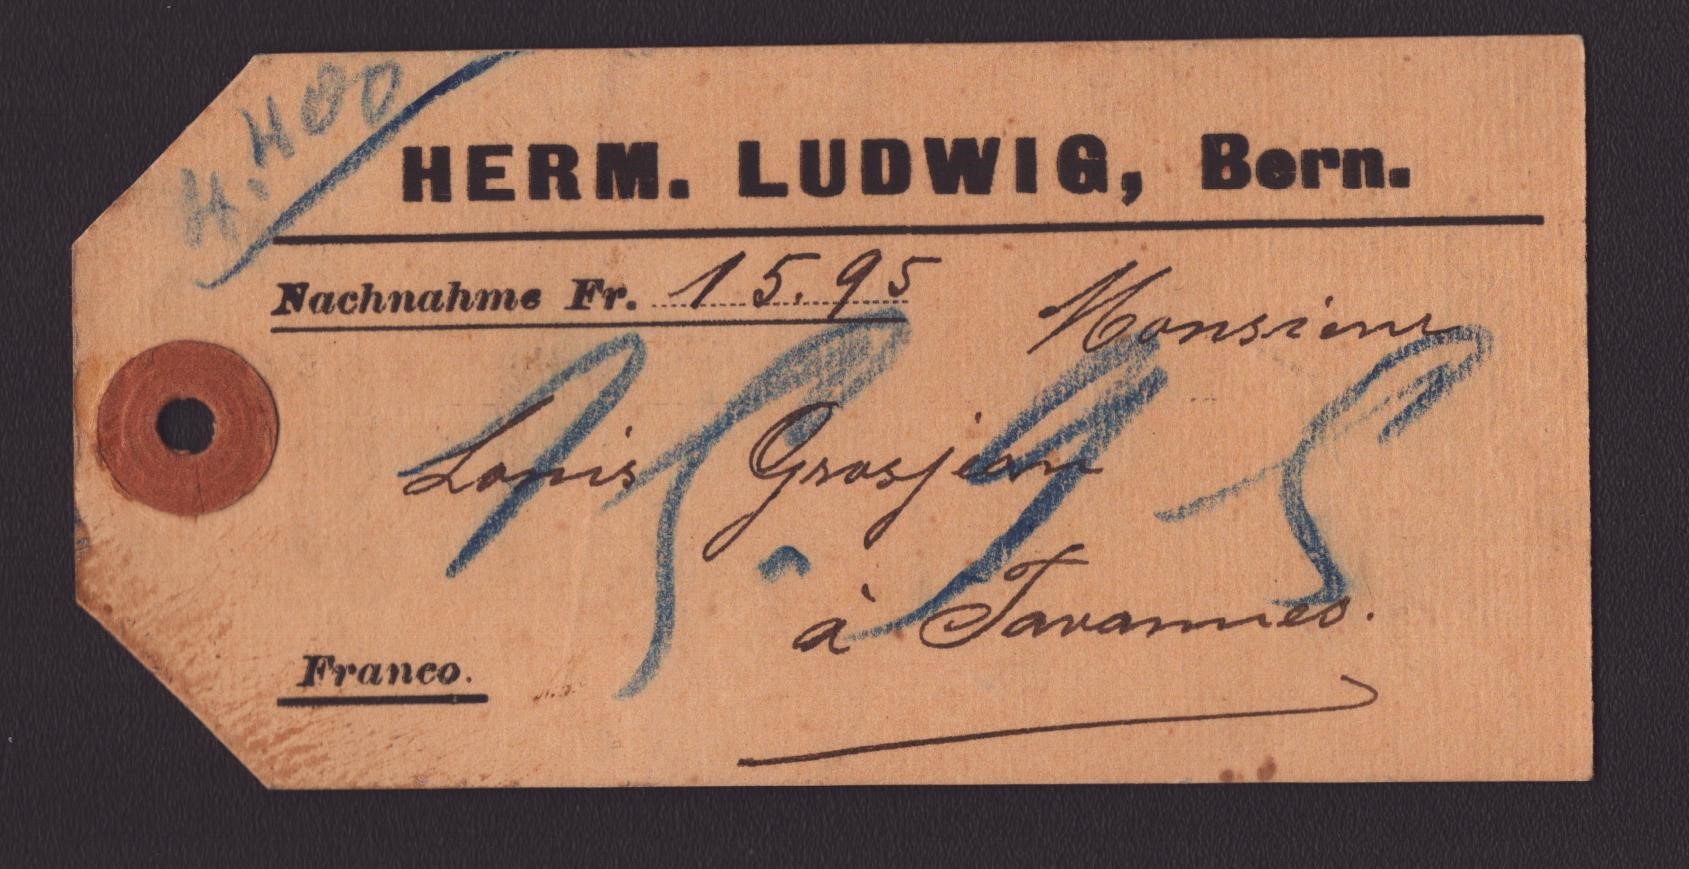 4.400
HERM. LUDWIG, Bern.
Nachnahme Fr. 15.95
Monsieur
Louis Grosjean
15.95
à Tavannes.
Franco.